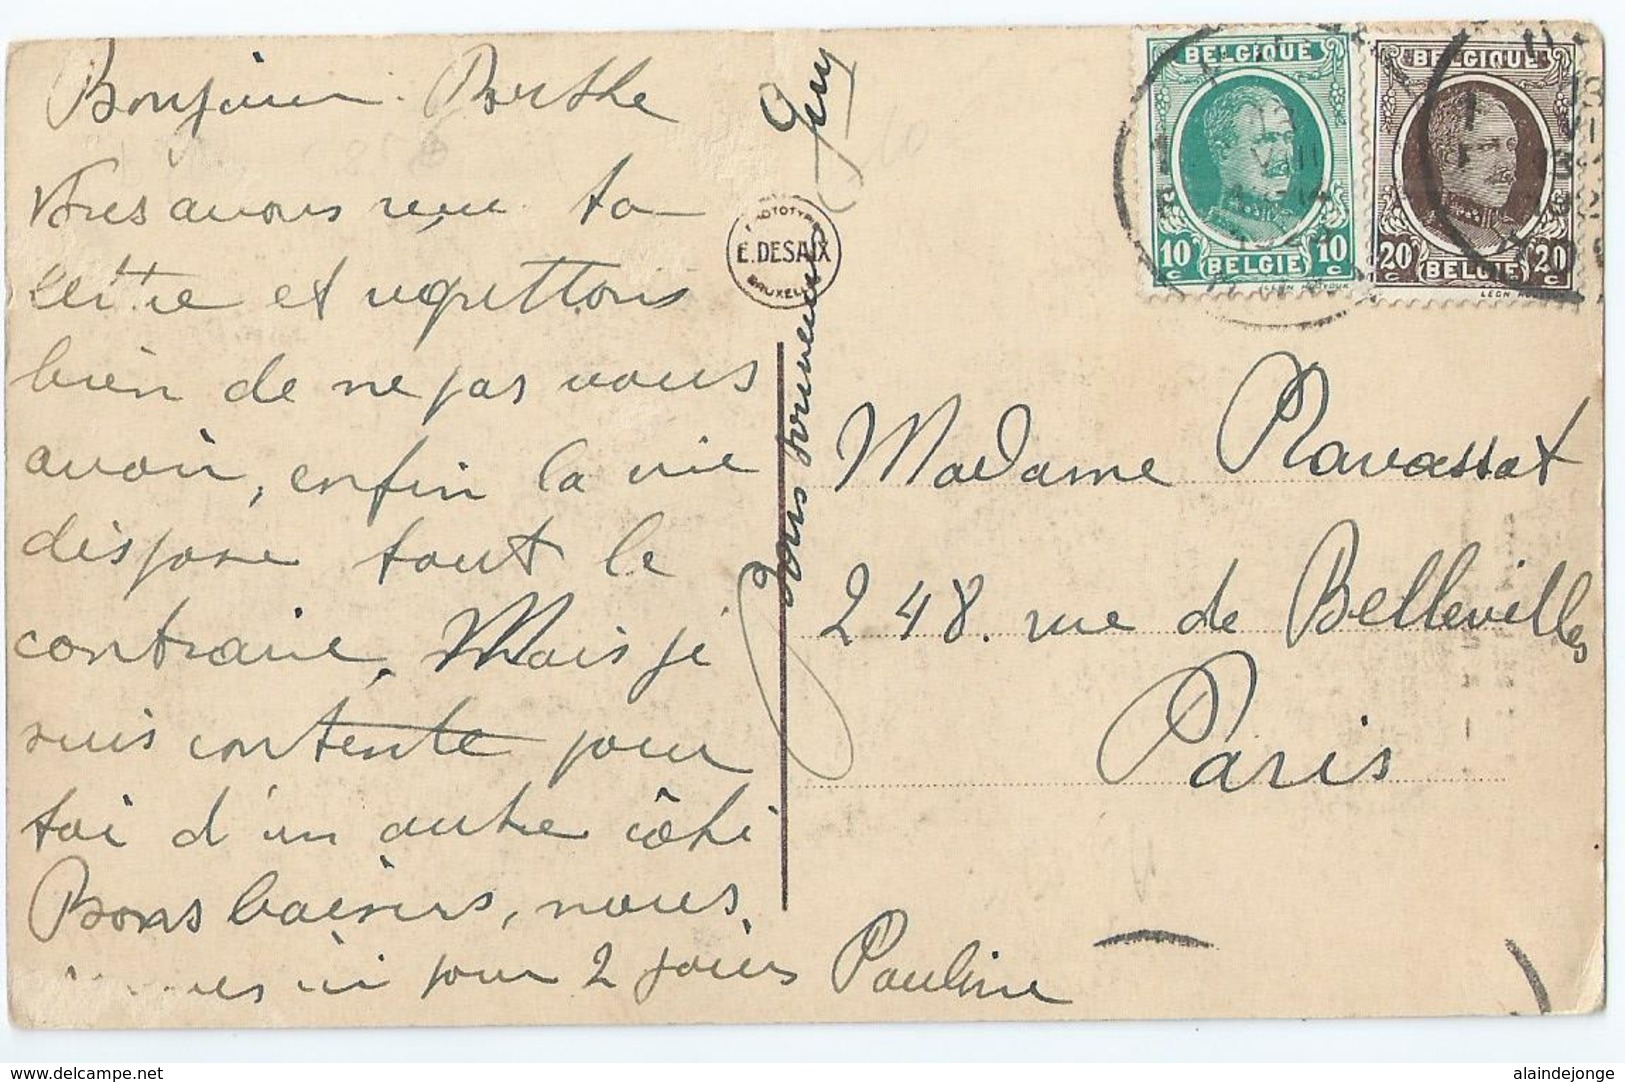 Bonjour Berthe
Nous avons reçu ta
lettre et regrettons
bien de ne pas vous
avoir, enfin la vie
dispose tout le
contraire, Mais je
suis contente pour
toi d'un autre côté
Bons baisers, nous
ici pour 2 jours Pauline
Bons souvenirs
Guy
PROTOTYPIE
E. DESAIX
BRUXELLES
BELGIQUE
10 c 10 c
BELGIE
BELGIQUE
20 c 20 c
BELGIE
Madame Ravassat
248. rue de Belleville
Paris
www.delcampe.net
alaindejonge